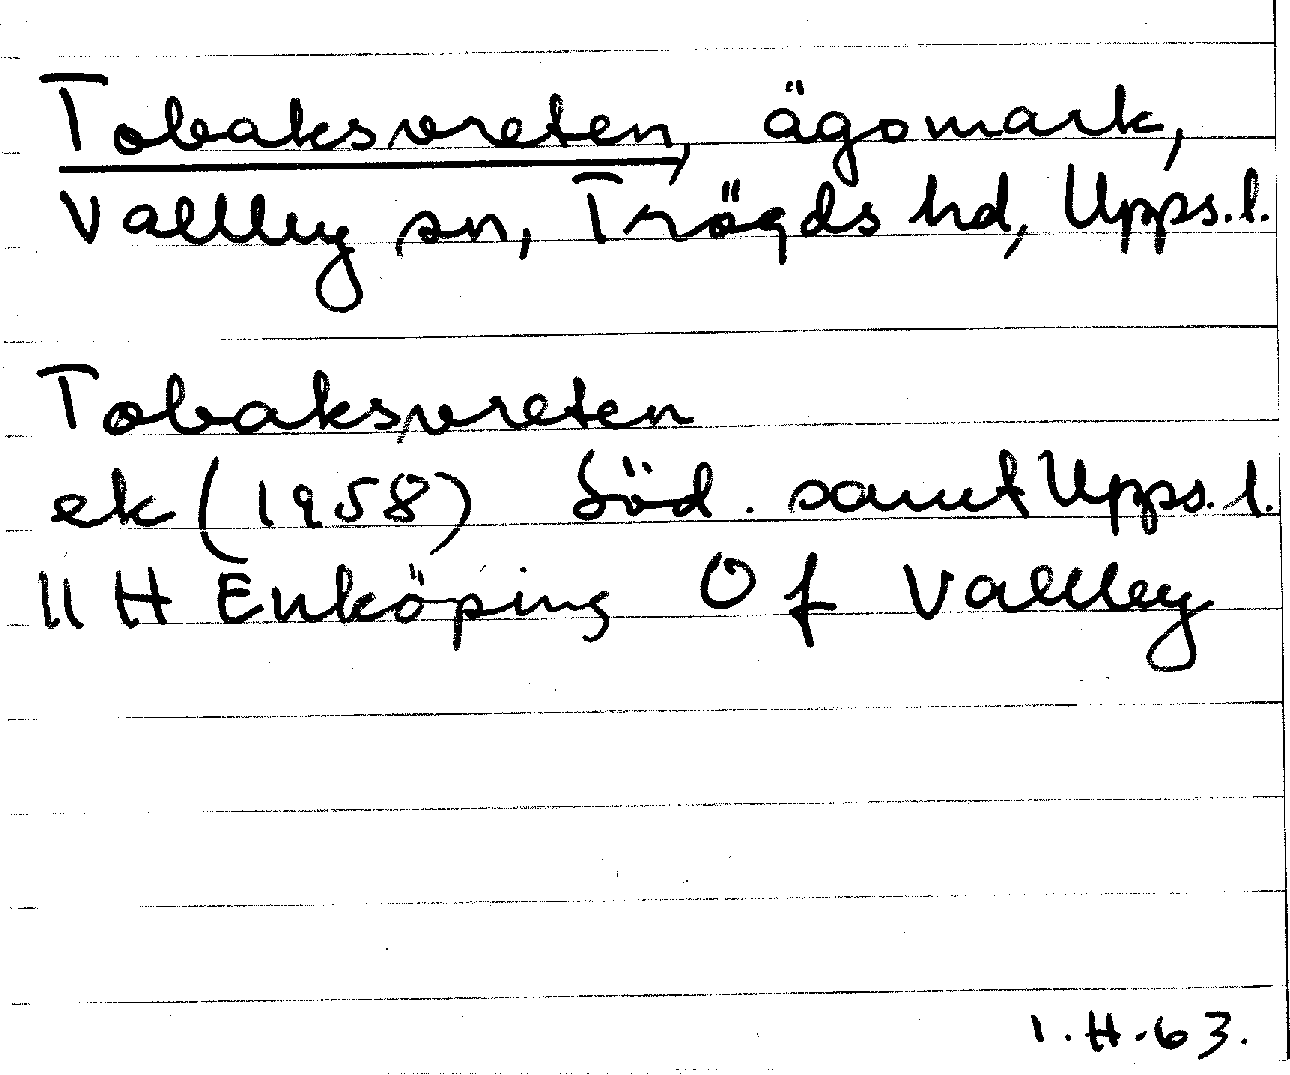 Tobaksvreten, ägomark,
Vallby sn, Trögds hd, Upps.l.
Tobaksvreten
ek (1958) Söd. samt Upps.l.
11 H Enköping 0 f Vallby
1.H.63.